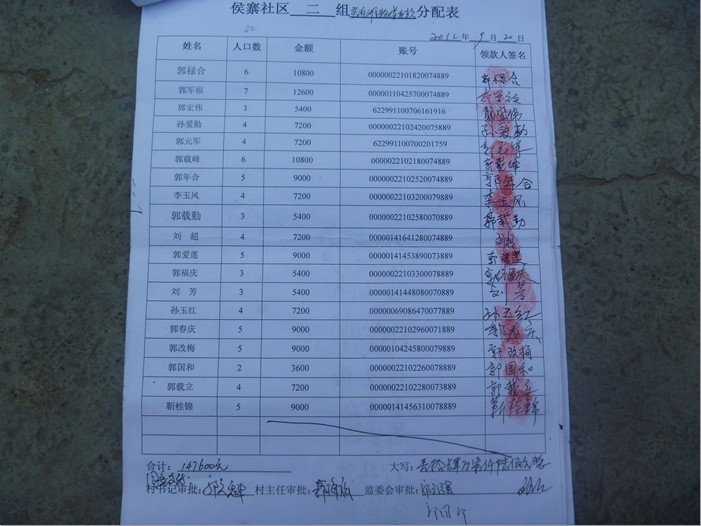 侯寨社区 二 组 分配表
2012年9月20日
姓名 人口数 金额 账号 领款人签名
郭禄合 6 10800 00000022101820074889 郭禄合
郭军福 7 12600 00000110425700074889
郭宏伟 3 5400 622991100706161916 郭宏伟
孙爱勤 4 7200 00000022102420075889 孙爱勤
郭元军 4 7200 622991100700201759 郭元军
郭载峰 6 10800 00000022102180074889 郭载峰
郭年合 5 9000 00000022102520074889 郭年合
李玉风 4 7200 00000022103200079889 李玉风
郭载勤 3 5400 00000022102580070889 郭载勤
刘一超 4 7200 00000141641280074889
郭爱莲 5 9000 00000141453890073889 郭爱莲
郭福庆 3 5400 00000022103300078889
刘 芳 3 5400 00000141448080070889 刘芳
孙玉红 4 7200 00000069086470077889 孙玉红
郭春庆 5 9000 00000022102960071889 郭春庆
郭改梅 5 9000 00000104245800079889 郭改梅
郭国和 2 3600 00000022102260078889 郭国和
郭载立 4 7200 00000022102280073889 郭载立
靳桂锦 5 9000 00000141456310078889 靳桂锦
合计：147600元 大写：
村书记审批： 村主任审批： 监委会审批：